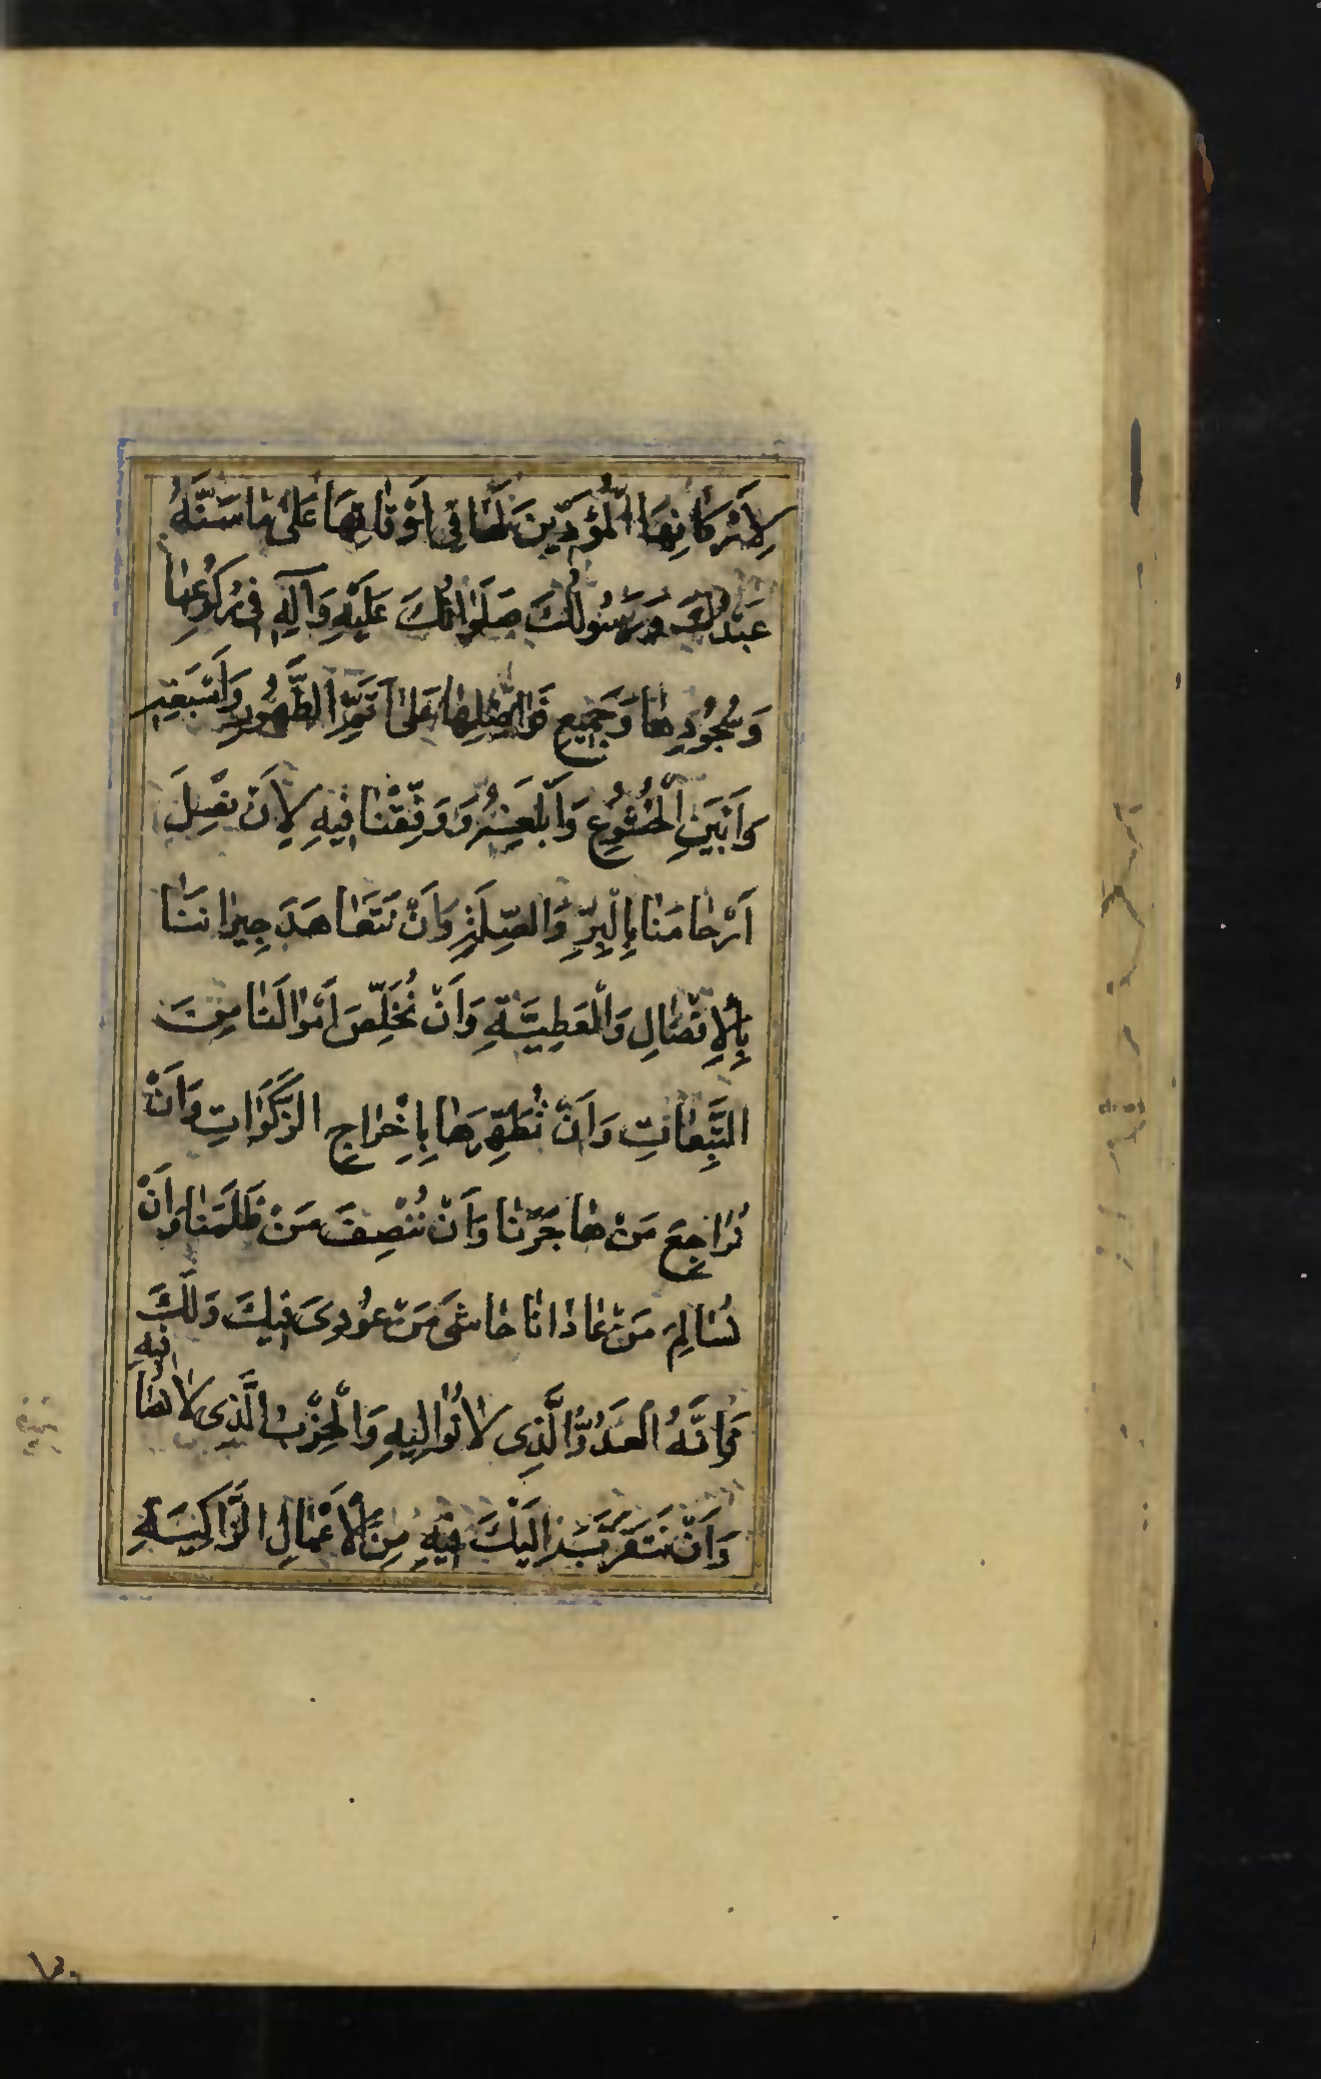 لِاَرْكانِهَا الْمُؤَدّينَ لَها فى اَوْقاتِها عَلىٰ ما سَنَّهُ
عَبْدُكَ وَرَسُولُكَ صَلَواتُكَ عَلَيْهِ وَآلِهِ فى رُكُوعِها
وَسُجُودِها وَجَميعِ فَواضِلِها عَلىٰ اَتَمِّ الطَّهُورِ وَاَسْبَغِهِ
وَاَبْيَنِ الْخُشُوعِ وَاَبْلَغِهِ وَوَفِّقْنا فيهِ لِاَنْ نَصِلَ
اَرْحامَنا بِالْبِرِّ وَالصِّلَةِ وَاَنْ نَتَعاهَدَ جيرانَنا
بِالْاِفْضالِ وَالْعَطِيَّةِ وَاَنْ نُخَلِّصَ اَمْوالَنا مِنَ
التَّبِعاتِ وَاَنْ نُطَهِّرَها بِاِخْراجِ الزَّكَواتِ وَاَنْ
نُراجِعَ مَنْ هاجَرَنا وَاَنْ نُنْصِفَ مَنْ ظَلَمَنا وَاَنْ
نُسالِمَ مَنْ عادانا حاشىٰ مَنْ عُودِىَ فيكَ وَلَكَ
فَاِنَّهُ الْعَدُوُّ الَّذى لا نُواليهِ وَالْحِزْبُ الَّذى لا نُصافيهِ
وَاَنْ نَتَقَرَّبَ اِلَيْكَ فيهِ مِنَ الْاَعْمالِ الزّاكِيَةِ